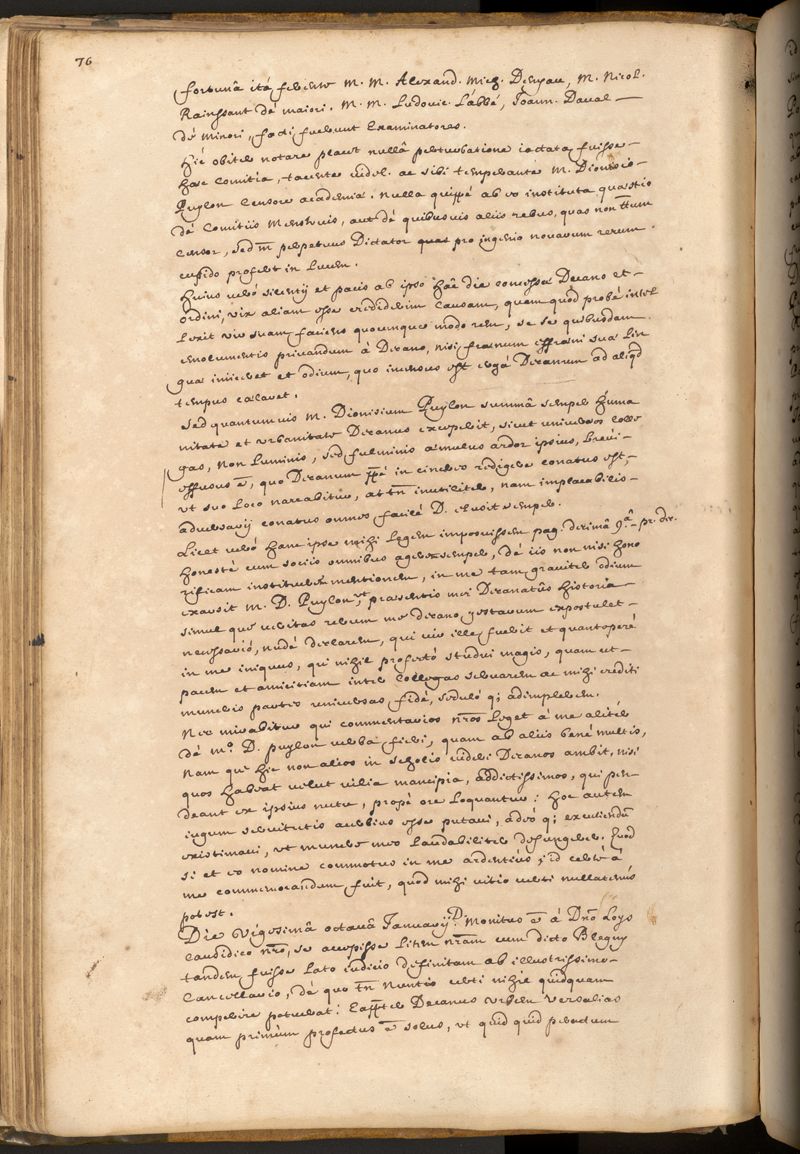 76
fortunâ itâ ferente M. M. Alexand. Mich. Denyau, M. Nicol.
Rainssant de maiori. M. M. Ludovic. Labbé, Joann. Daval
de minori, facti fuerunt Examinatores.
Hîc obiter notare placet nullâ perturbatione iactata fuisse
haec Comitia, tacente videl. ac sibi temperante M. Dionisio
Puylon Censore academiae. Nulla quippè ab eo instituta quaestio
de Comitiis Menstruis, aut de quibusvis aliis rebus, quas non tm
Censor, sed m perpetuus Dictator quas pro ingenio novarum rerum
cupido profert in Lucem.
Huius verò silentij et pacis ab ipso hâc die concessae Decano et
ordini, vix aliam esse crediderim Causam, quam quod probè intel
lexit vir suam faciens quocumque modo rem, se se quibusdam
emolumentis privandum à Decano, nisi fraenum effraeni suae Lin
guae iniiceret et odium, quo incensus est ergà Decanum ad aliqd
tempus celaret.
Sed quantumvis M. Dionisium Puylon summâ semper huma
nitate et urbanitate Decanus exceperit, sicut universos colle
gas, non Luminis, sed fulminis aemulus ardor ipsius,
effusus ē, quo Decanum in cineres redigere conatus est,
ut suo Loco narrabitur, at tñ inutiliter, nam implacabilis
adversarij conatus omnes facilè D. elusit semper.
Licet verò hanc ipse mihi Legem imposuissem pag. decimâ 9.â pr. dec.
honestè cum sociis omnibus agere semper, de iis non nisi hono
rificam instituere mentionem, in me tam graviter odium
exarsit M. D. Puylon, vt praesentis mei Decanatûs historia
simul que veritas rerum me decano gestarum expostulet
necessariò, nudè declarem, qui vir ille fuerit et quantoperè
in me iniquus, qui nihil profectò studui magis, quam ut
pacem et amicitiam inter Collegas servarem ac mihi crediti
muneris partes universas fidè, sedulò q; adimplerem.
Nec mirabitur qui commentarios nros Leget à me aliter
de m.o D. puylon verba fieri, quam ab aliis bene multis,
Nam qui hic non alios in scholis videri Decanos ambit, nisi
quos habeat velut vilia mancipia, addictissimos, qui pen
deant ex ipsius nutu, propè ore Loquantur; hoc autem
iugum servitutis acerbius esse putavi, adeo q; excutiendum
existimavi, ut munere meo Laudabiliter defungerer. Quod
si et eo nomine commotus in me ardentiùs; id certè à
me commemorandum fuit, quod mihi vitio verti nullatenùs
potest.
Die Vigesimâ octavâ Januarij D. Monitus ē à Dno Loys
Causidico nro, se accepisse Litem nram cum dicto Blegny
tandem fuisse Lato iudicio definitam ab illustrissimo
Cancellario, de quo tñ Nuntio certi nihil quidquam
comperire potuerat: Decanus urbem Versalias
quam primùm profectus ē solus, ut quid quid